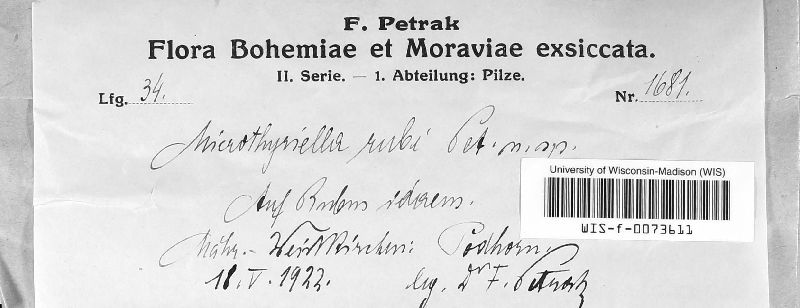 F. Petrak
Flora Bohemiae et Moraviae exsiccata.
II. Serie. — 1. Abteilung: Pilze.
Lfg. 34. Nr. 1681.
Microthyriella rubi Pet. n. sp.
University of Wisconsin-Madison (WIS)
WIS-f-0073611
Auf Rubus idaeus.
Mähr.-Weisskirchen: Podhorn,
18. V. 1922. leg. Dr F. Petrak